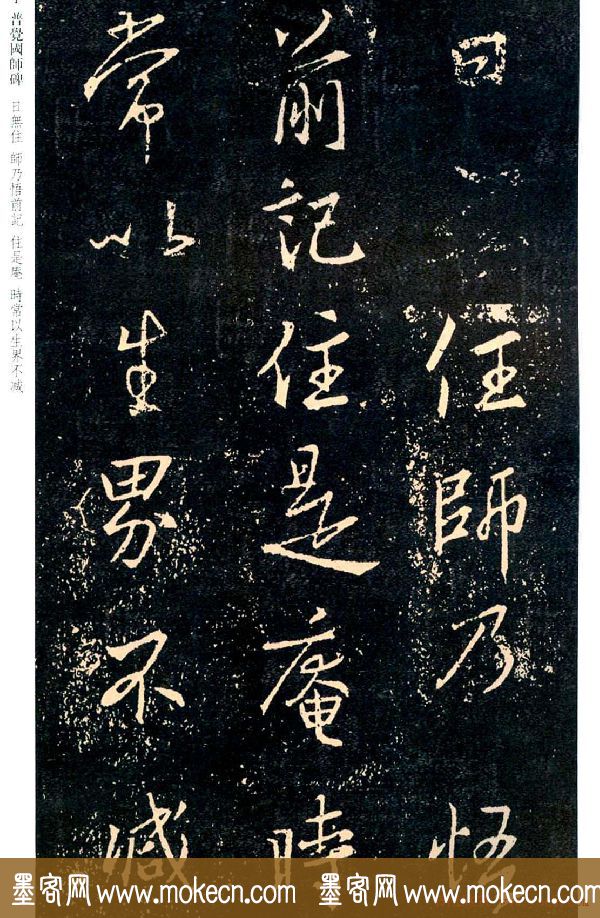 曰住師乃悟
前記住是庵時
常以生界不減
普覺國師碑 曰無住 師乃悟前記 住是庵 時常以生界不减
墨客网 www.mokecn.com 墨客网 www.mokecn.com